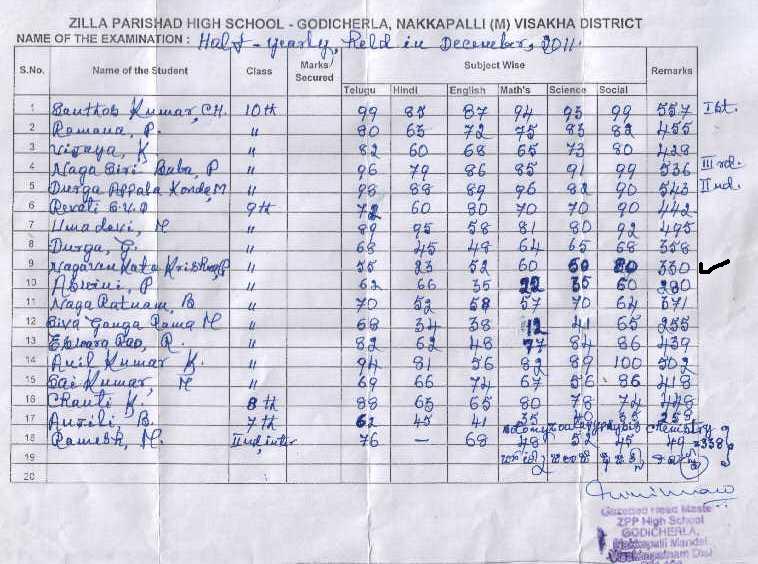 ZILLA PARISHAD HIGH SCHOOL - GODICHERLA, NAKKAPALLI (M) VISAKHA DISTRICT
NAME OF THE EXAMINATION : Half - yearly, Held in December, 2011.
S.No. Name of the Student Class Marks Secured Subject Wise Remarks
Telugu Hindi English Math's Science Social
1 Santhosh Kumar, CH. 10th 99 85 87 94 93 99 557 Ist.
2 Ramana, P. " 80 63 72 75 83 82 455
3 Vijaya, K " 82 60 68 65 73 80 428
4 Naga Siri Baba, P " 96 79 86 85 91 99 536 IIIrd.
5 Durga Appala Konda, M " 98 88 89 96 82 90 543 IInd.
6 Revati 9th 72 60 80 70 70 90 442
7 Umadevi, M " 89 95 58 81 80 92 495
8 Durga, G. " 68 45 48 64 65 68 358
9 " 55 23 52 60 60 80 330
10 Aswini, P " 62 66 35 22 35 60 280
11 Naga Ratnam, B " 70 52 58 57 70 64 371
12 Siva Ganga Rama M " 68 34 38 12 41 65 255
13 Eswara Rao, R. " 82 62 48 77 84 86 439
14 Anil Kumar K. " 94 81 56 82 89 100 502
15 Sai Kumar, M " 69 66 74 67 56 86 418
16 Chanti K. 8th 88 63 65 80 78 74 448
17 B. 7th 62 45 41 35 40 35 258
Botony Zoology physics chemistry
18 Ramesh, M. IInd, inter 76 – 68 48 52 45 49 =338
19
20
Gazetted Head Maste
ZPP High School
GODICHERLA,
Nakkapalli Mandal
Visakhapatnam Dist